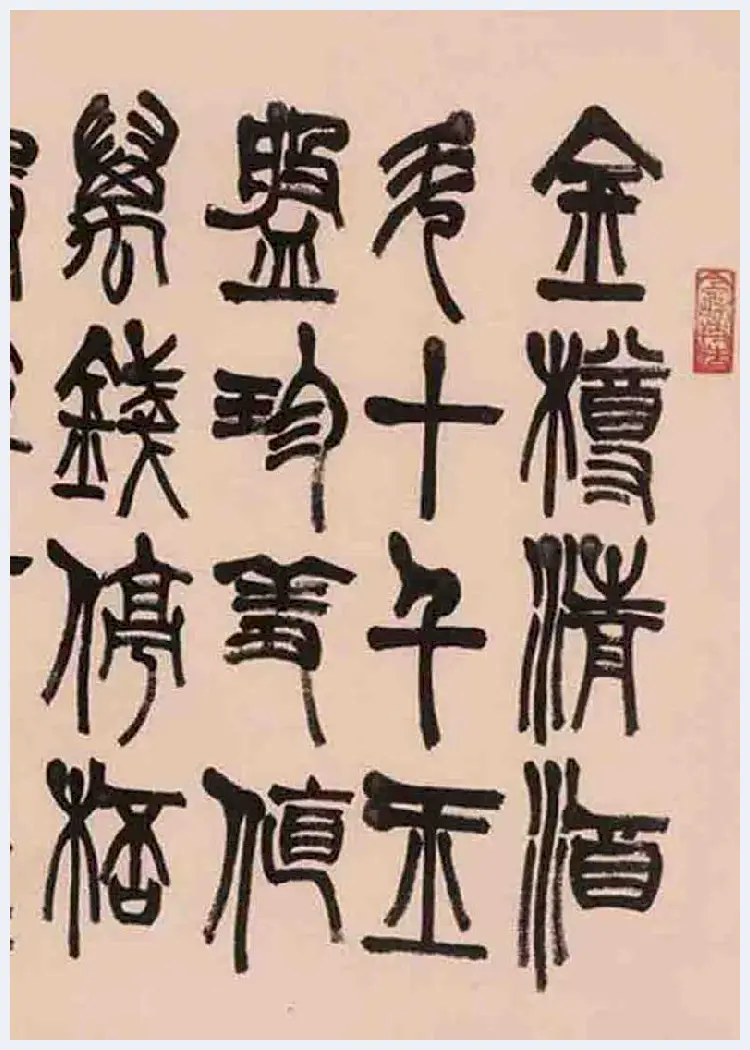 金樽清酒
斗十千玉
盤珍羞值
萬錢停桮